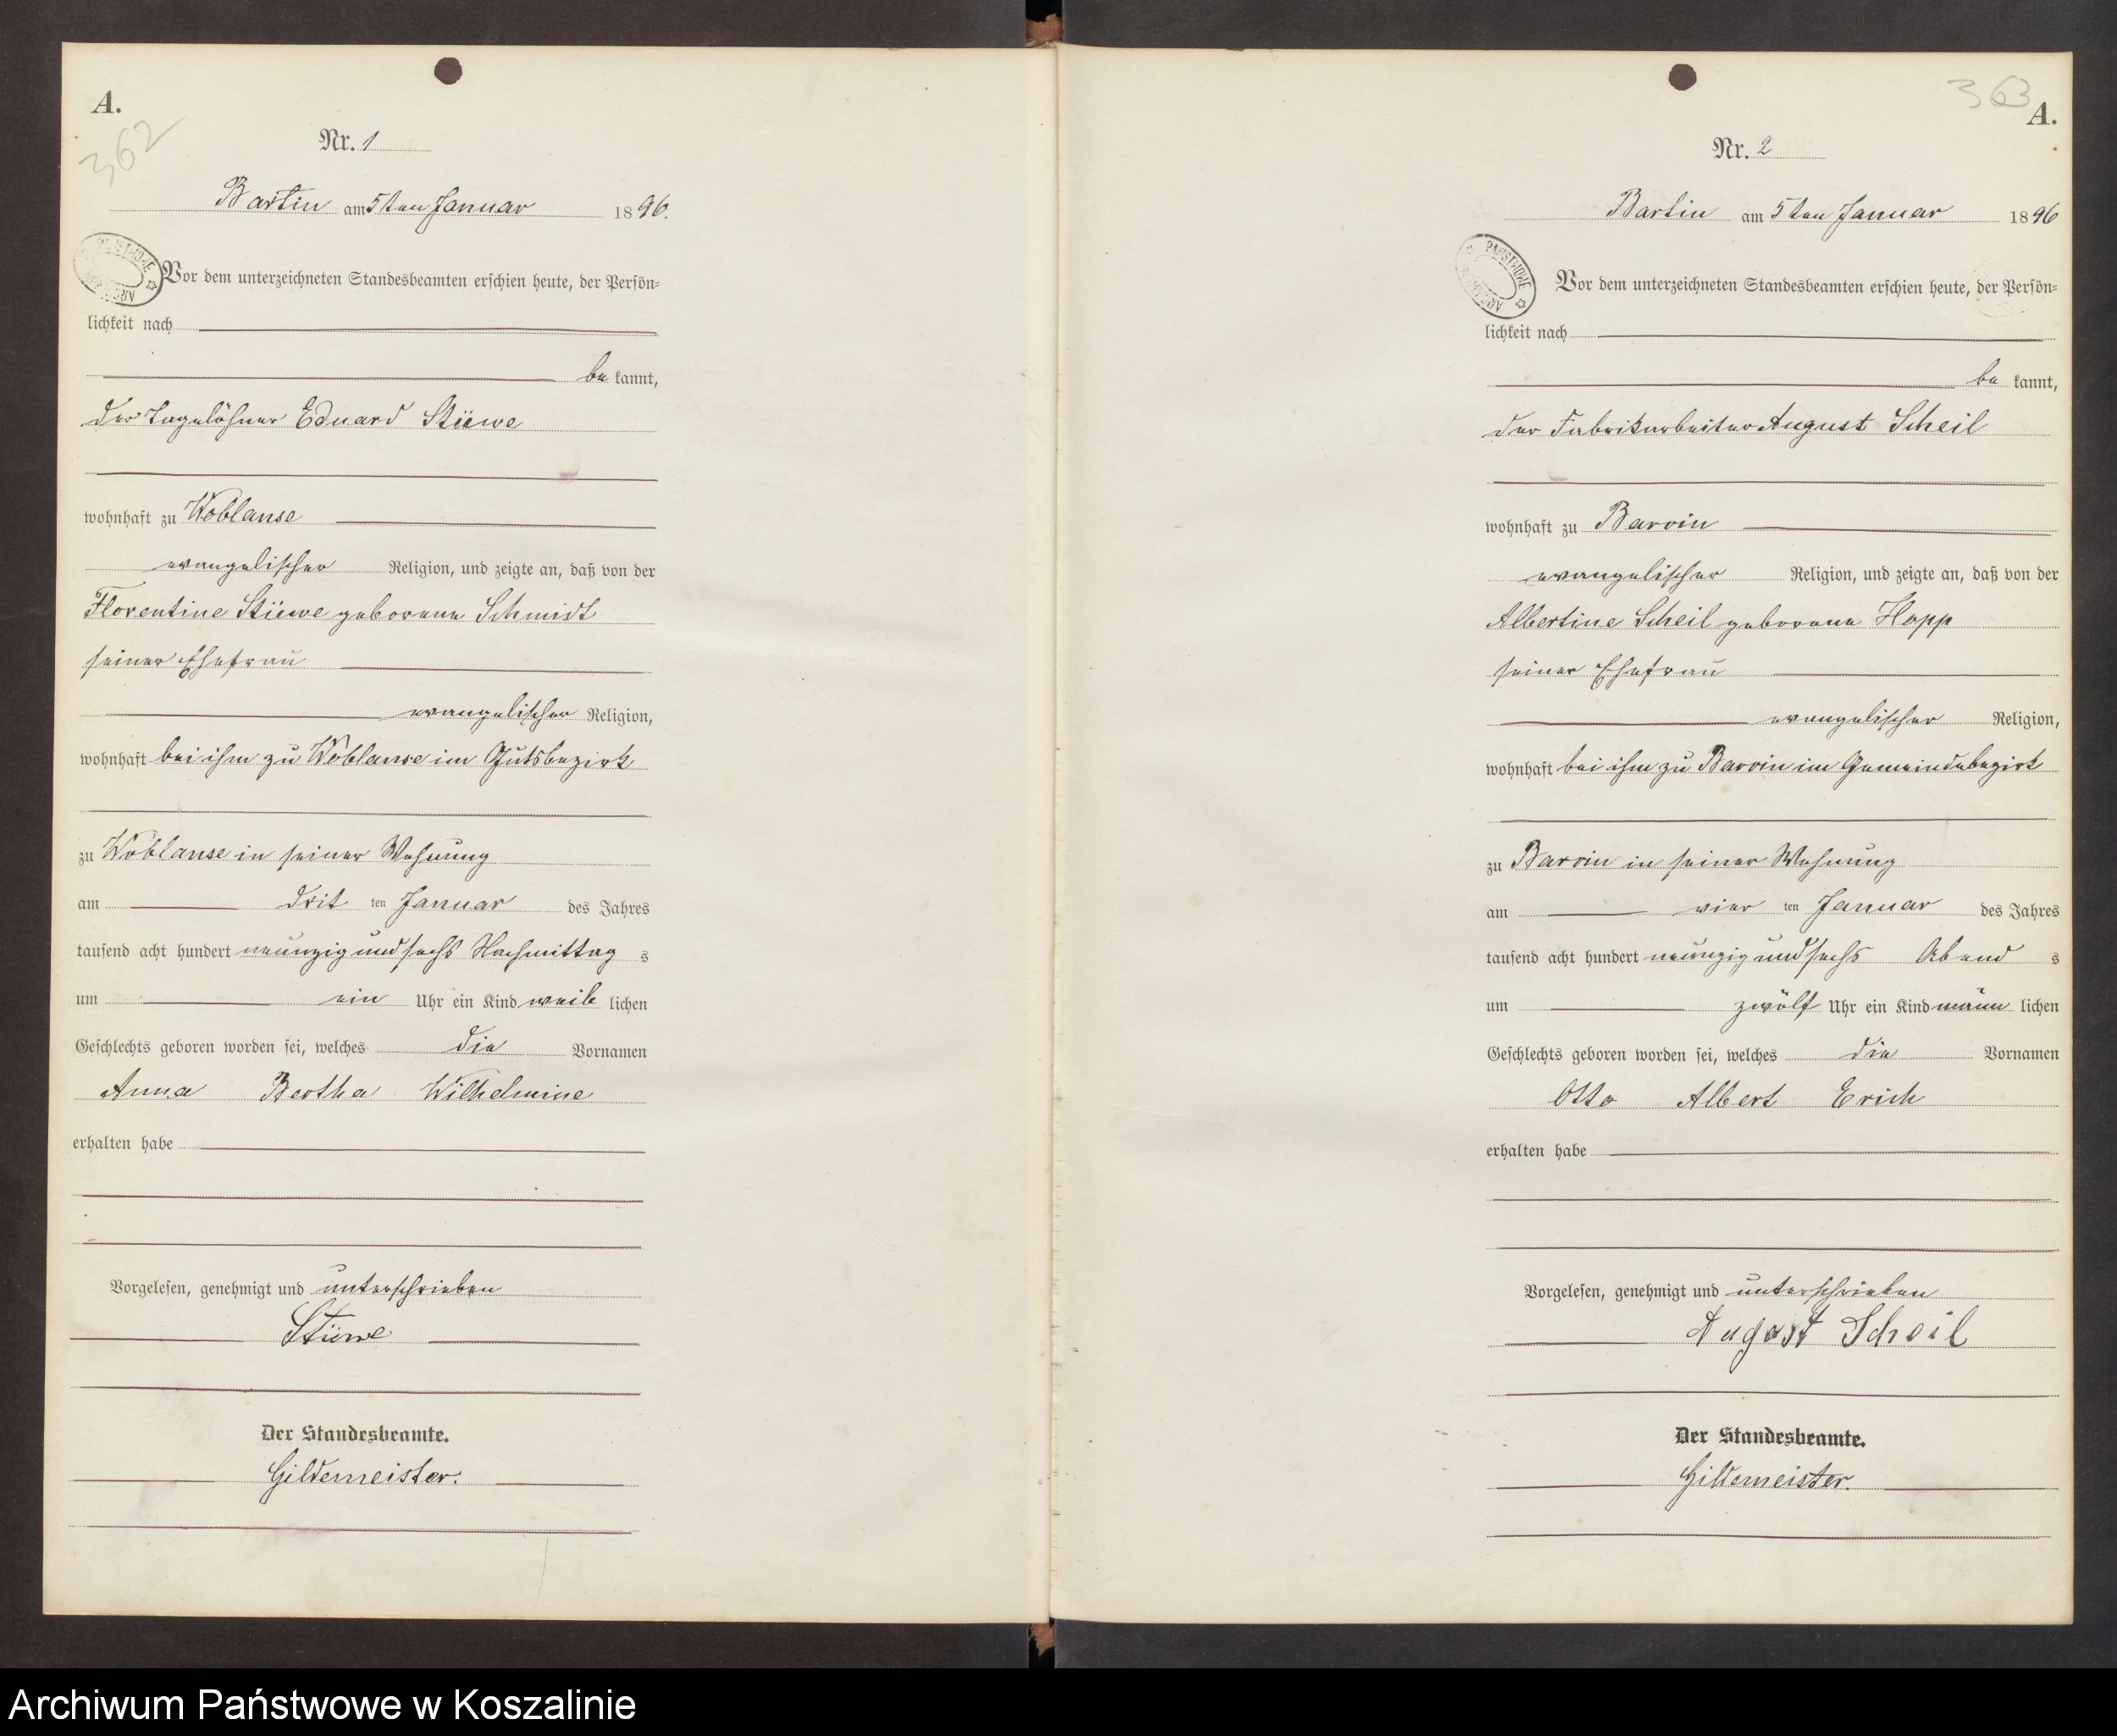 A.
362
Nr. 1
Bartin am 5ten Januar 1896.
Vor dem unterzeichneten Standesbeamten erschien heute, der Persön-
lichkeit nach
be kannt,
der Tagelöhner Eduard Stüwe
wohnhaft zu Woblanse
evangelischer Religion, und zeigte an, daß von der
Florentine Stüwe geborene Schmidt
seiner Ehefrau
evangelischer Religion,
wohnhaft bei ihm zu Woblanse im Gutsbezirk
zu Woblanse in seiner Wohnung
am drit ten Januar des Jahres
tausend acht hundert neunzig und sechs Nachmittag s
um ein Uhr ein Kind weib lichen
Geschlechts geboren worden sei, welches die Vornamen
Anna Bertha Wilhelmine
erhalten habe
Vorgelesen, genehmigt und unterschrieben
Stüwe
Der Standesbeamte.
Gildemeister.
363
A.
Nr. 2
Bartin am 5ten Januar 1896
PAŃSTWOWE
Vor dem unterzeichneten Standesbeamten erschien heute, der Persön-
lichkeit nach
be kannt,
der Fabrikarbeiter August Scheil
wohnhaft zu Barvin
evangelischer Religion, und zeigte an, daß von der
Albertine Scheil geborene Hopp
seiner Ehefrau
evangelischer Religion,
wohnhaft bei ihm zu Barvin im Gemeindebezirk
zu Barvin in seiner Wohnung
am vier ten Januar des Jahres
tausend acht hundert neunzig und sechs Abend s
um zwölf Uhr ein Kind männ lichen
Geschlechts geboren worden sei, welches die Vornamen
Otto Albert Erich
erhalten habe
Vorgelesen, genehmigt und unterschrieben
August Scheil
Der Standesbeamte.
Gildemeister.
Archiwum Państwowe w Koszalinie